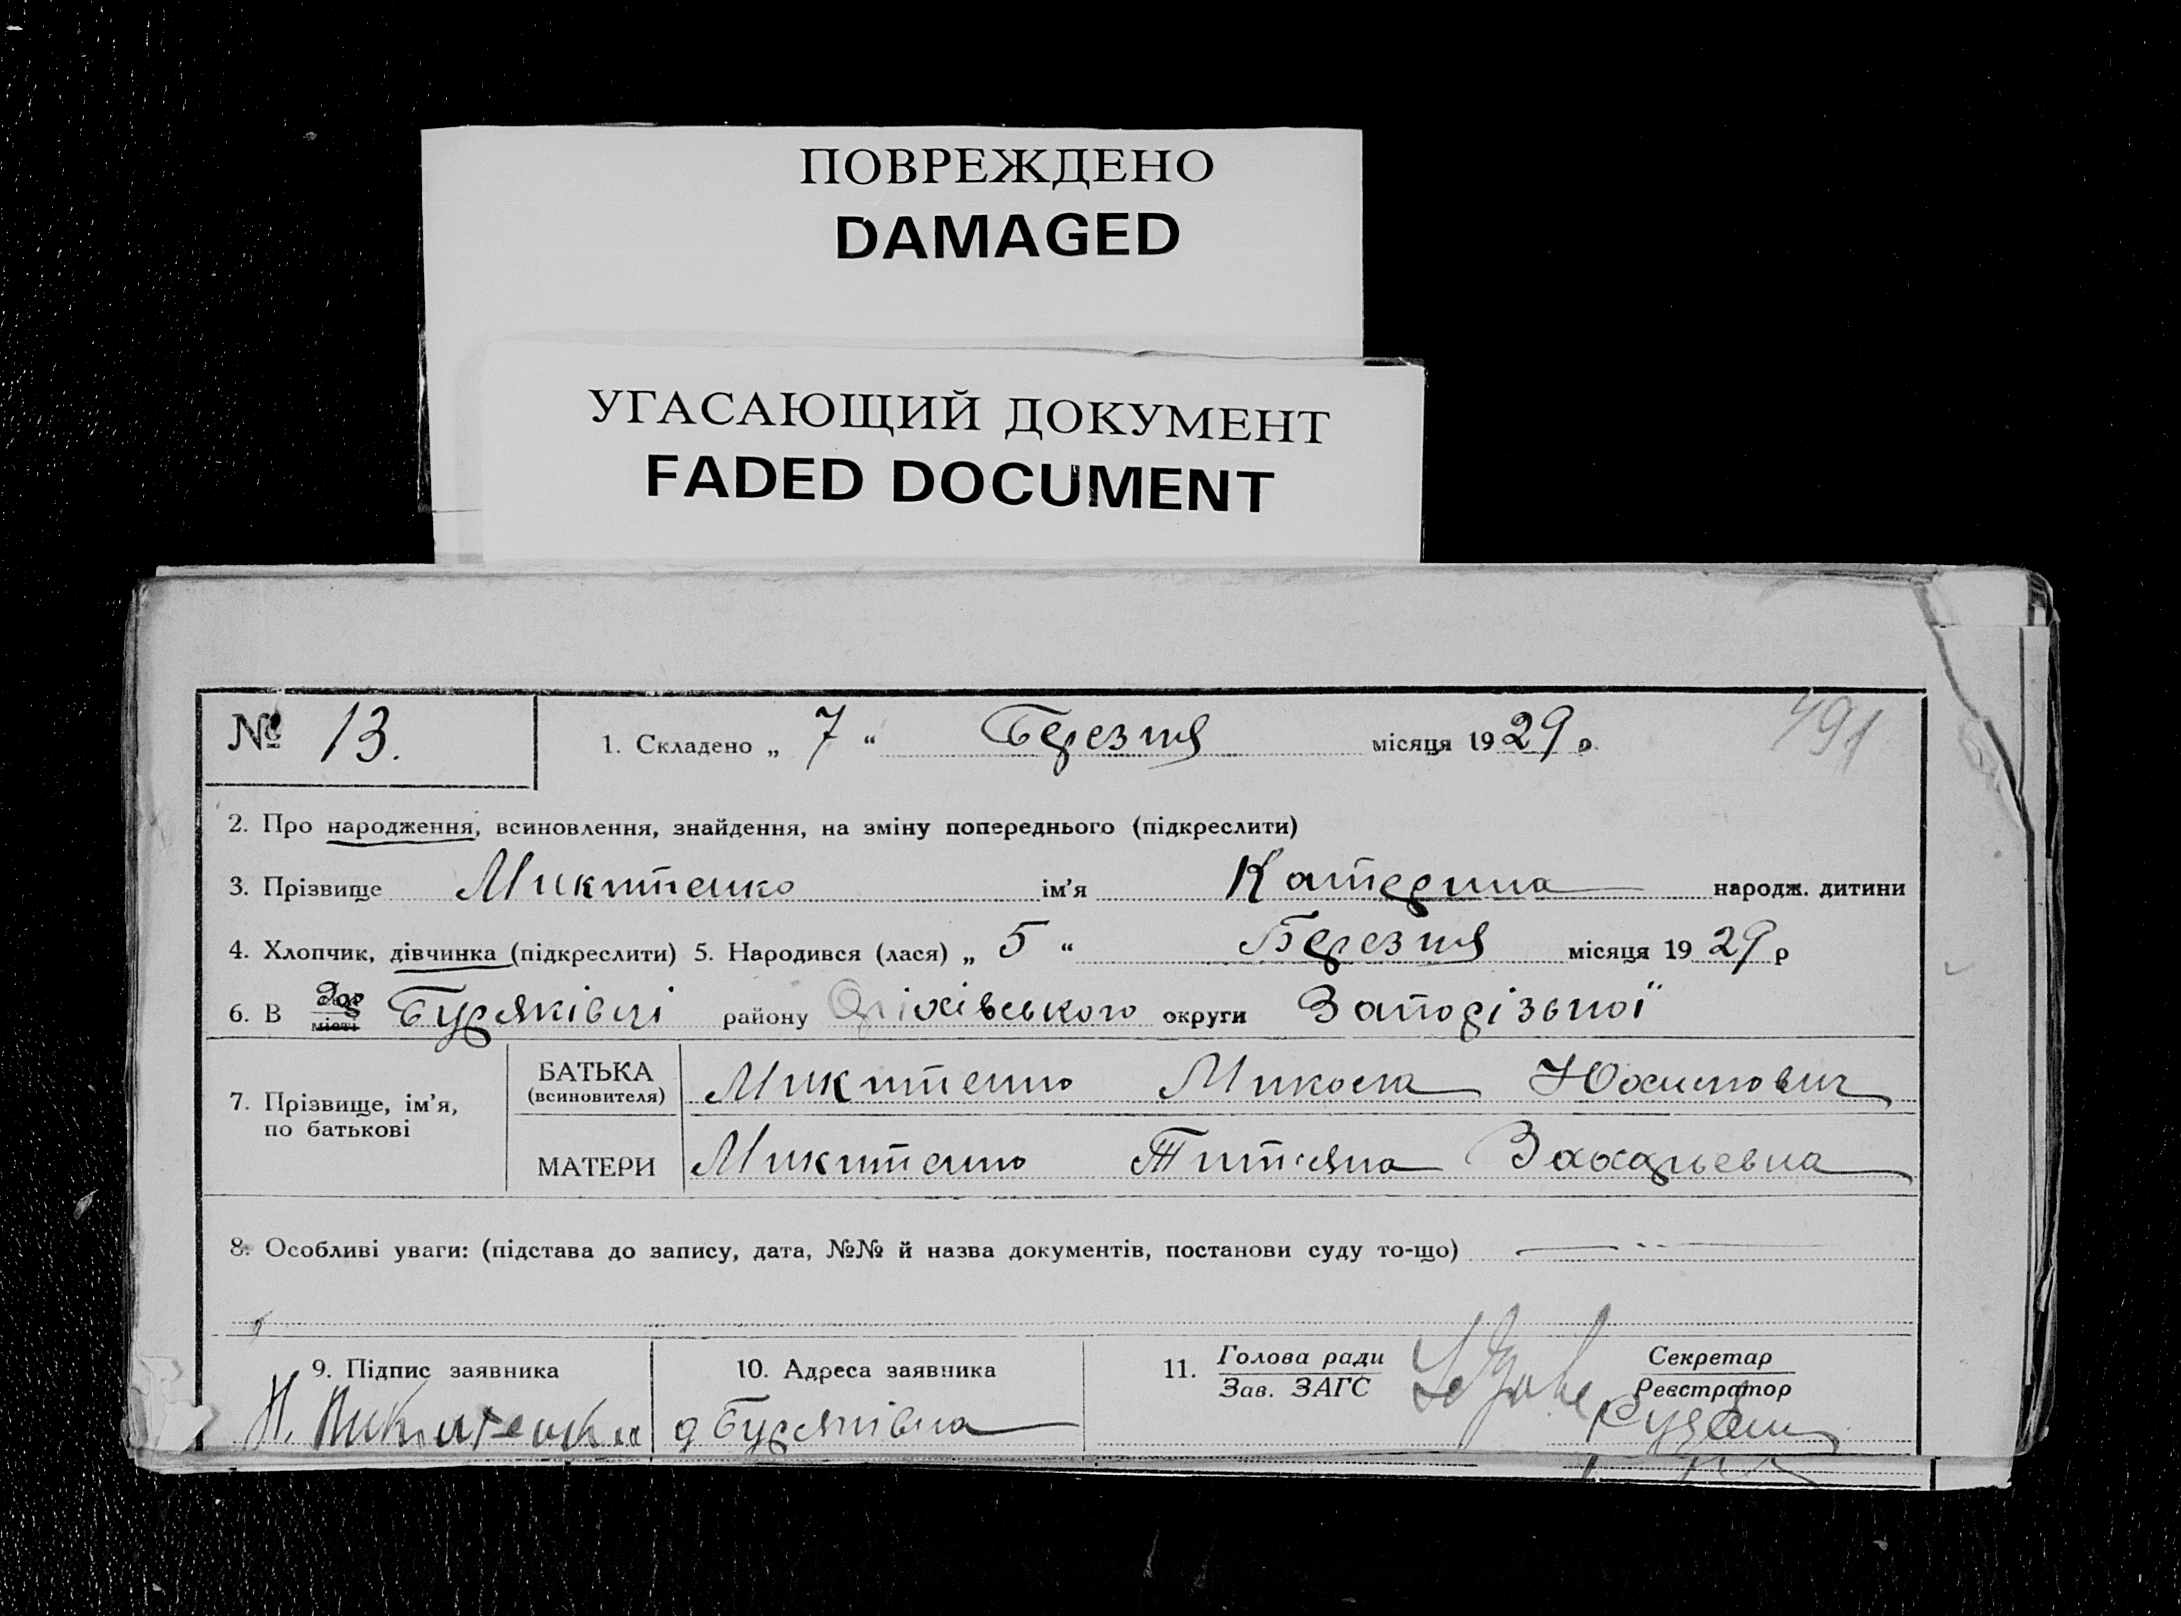 ПОВРЕЖДЕНО
DAMAGED
УГАСАЮЩИЙ ДОКУМЕНТ
FADED DOCUMENT
№ 13. 1. Складено „ 7 “ Березня місяця 1929 р. 491
2. Про народження, всиновлення, знайдення, на зміну попереднього (підкреслити)
3. Прізвище Микитенко ім’я Катерина народж. дитини
4. Хлопчик, дівчинка (підкреслити) 5. Народився (лася) „ 5 “ Березня місяця 1929 р
6. В місті Буряківці району Оріхівського округи Запорізької
7. Прізвище, ім’я, по батькові
БАТЬКА (всиновителя) Микитенко Микола Юхимович
МАТЕРИ Микитенко Титяна Захарьевна
8. Особливі уваги: (підстава до запису, дата, №№ й назва документів, постанови суду то-що)
9. Підпис заявника 10. Адреса заявника 11. Голова ради Секретар
Зав. ЗАГС Реєстратор
Н. Микитенко д Буряківка